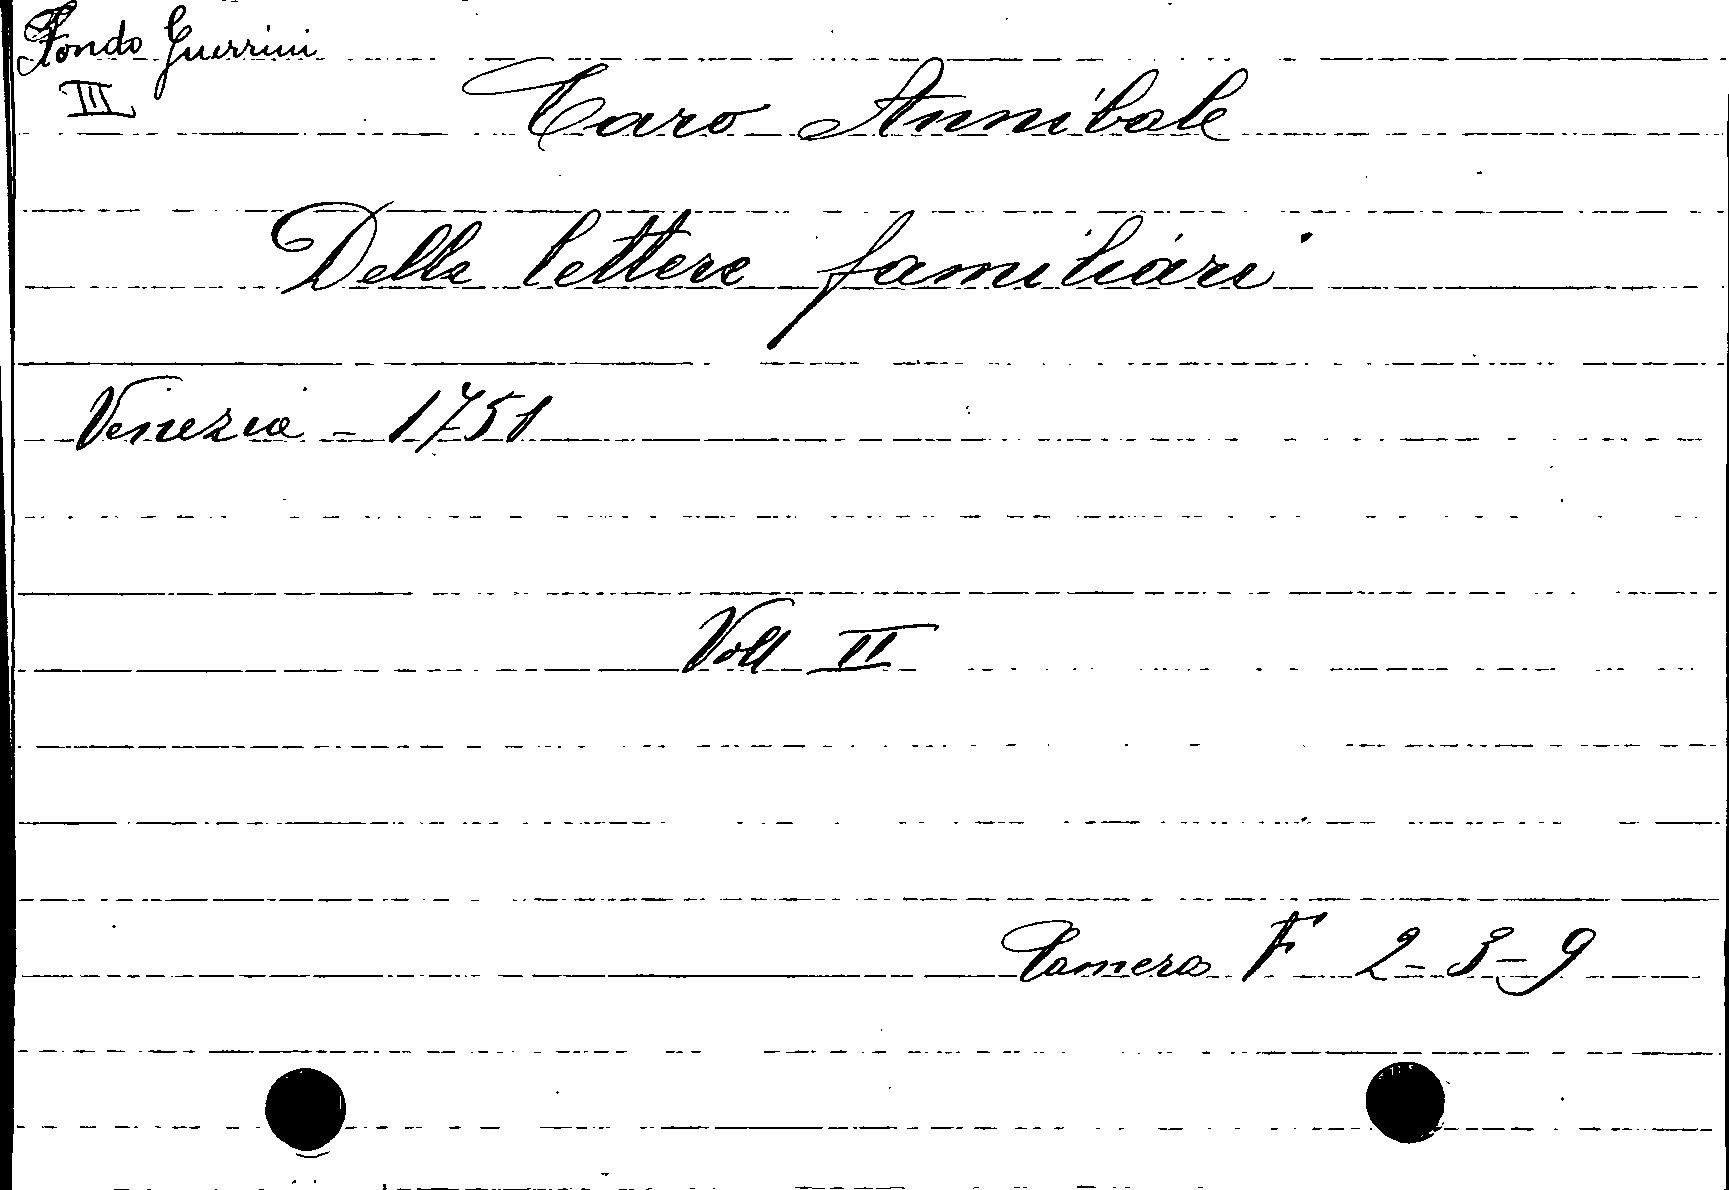 Fondo Guerrini
III
Caro Annibale
Delle lettere familiari
Venezia - 1751
Voll II
Camera F 2-3-9